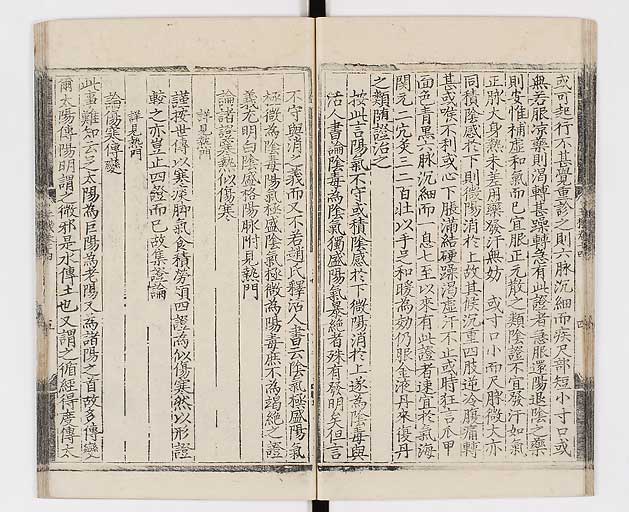 或可起行不甚覺重診之則六脉沉細而疾尺部短小寸口或
無若服凉藥則渴轉甚躁轉急有此證者急服還陽退陰之藥
則安惟補虛和氣而已宜服正元散之類陰證不宜發汗如氣
正脉大身熱未差用藥發汗無妨 或寸口小而尺脉微大亦
同積陰感於下則微陽消於上故其候沉重四肢逆冷腹痛轉
甚或喉不利或心下脹滿結硬躁渴虛汗不止或時狂言爪甲
面色青黑六脉沉細而一息七至以來有此證者速宜於氣海
関元二穴灸三二百壯以手足和暖為効仍服金液丹來復丹
之類隨證治之
按此言陽氣不守或積陰感於下微陽消於上遂為陰毒與
活人書論陰毒為陰氣獨盛陽氣暴絶者殊有發明矣但言
不守與消之義而又不若趙氏釋活人書云陰氣極盛陽氣
極微為陰毒陽氣極盛陰氣極微為陽毒庶不為竭絶之證
義尤明白陰盛格陽脉附見熱門
論諸證發熱似傷寒
詳見熱門
謹按世傳以寒痰脚氣食積勞煩四證為似傷寒然以形證
較之亦豈止四證而已故集證論
詳見熱門
論傷寒傳變
此事難知云乎太陽為巨陽為老陽又為諸陽之首故多傳變
爾太陽傳陽明謂之微邪是水傳土也又謂之循經得度傳太